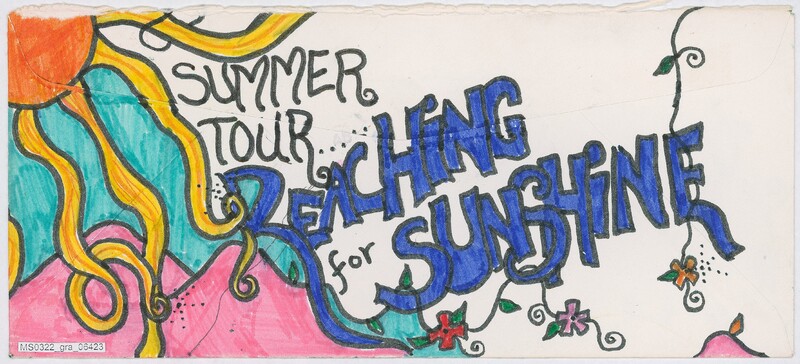 SUMMER
TOUR.....
REACHING
for SUNSHINE
MS0322_gra_06423